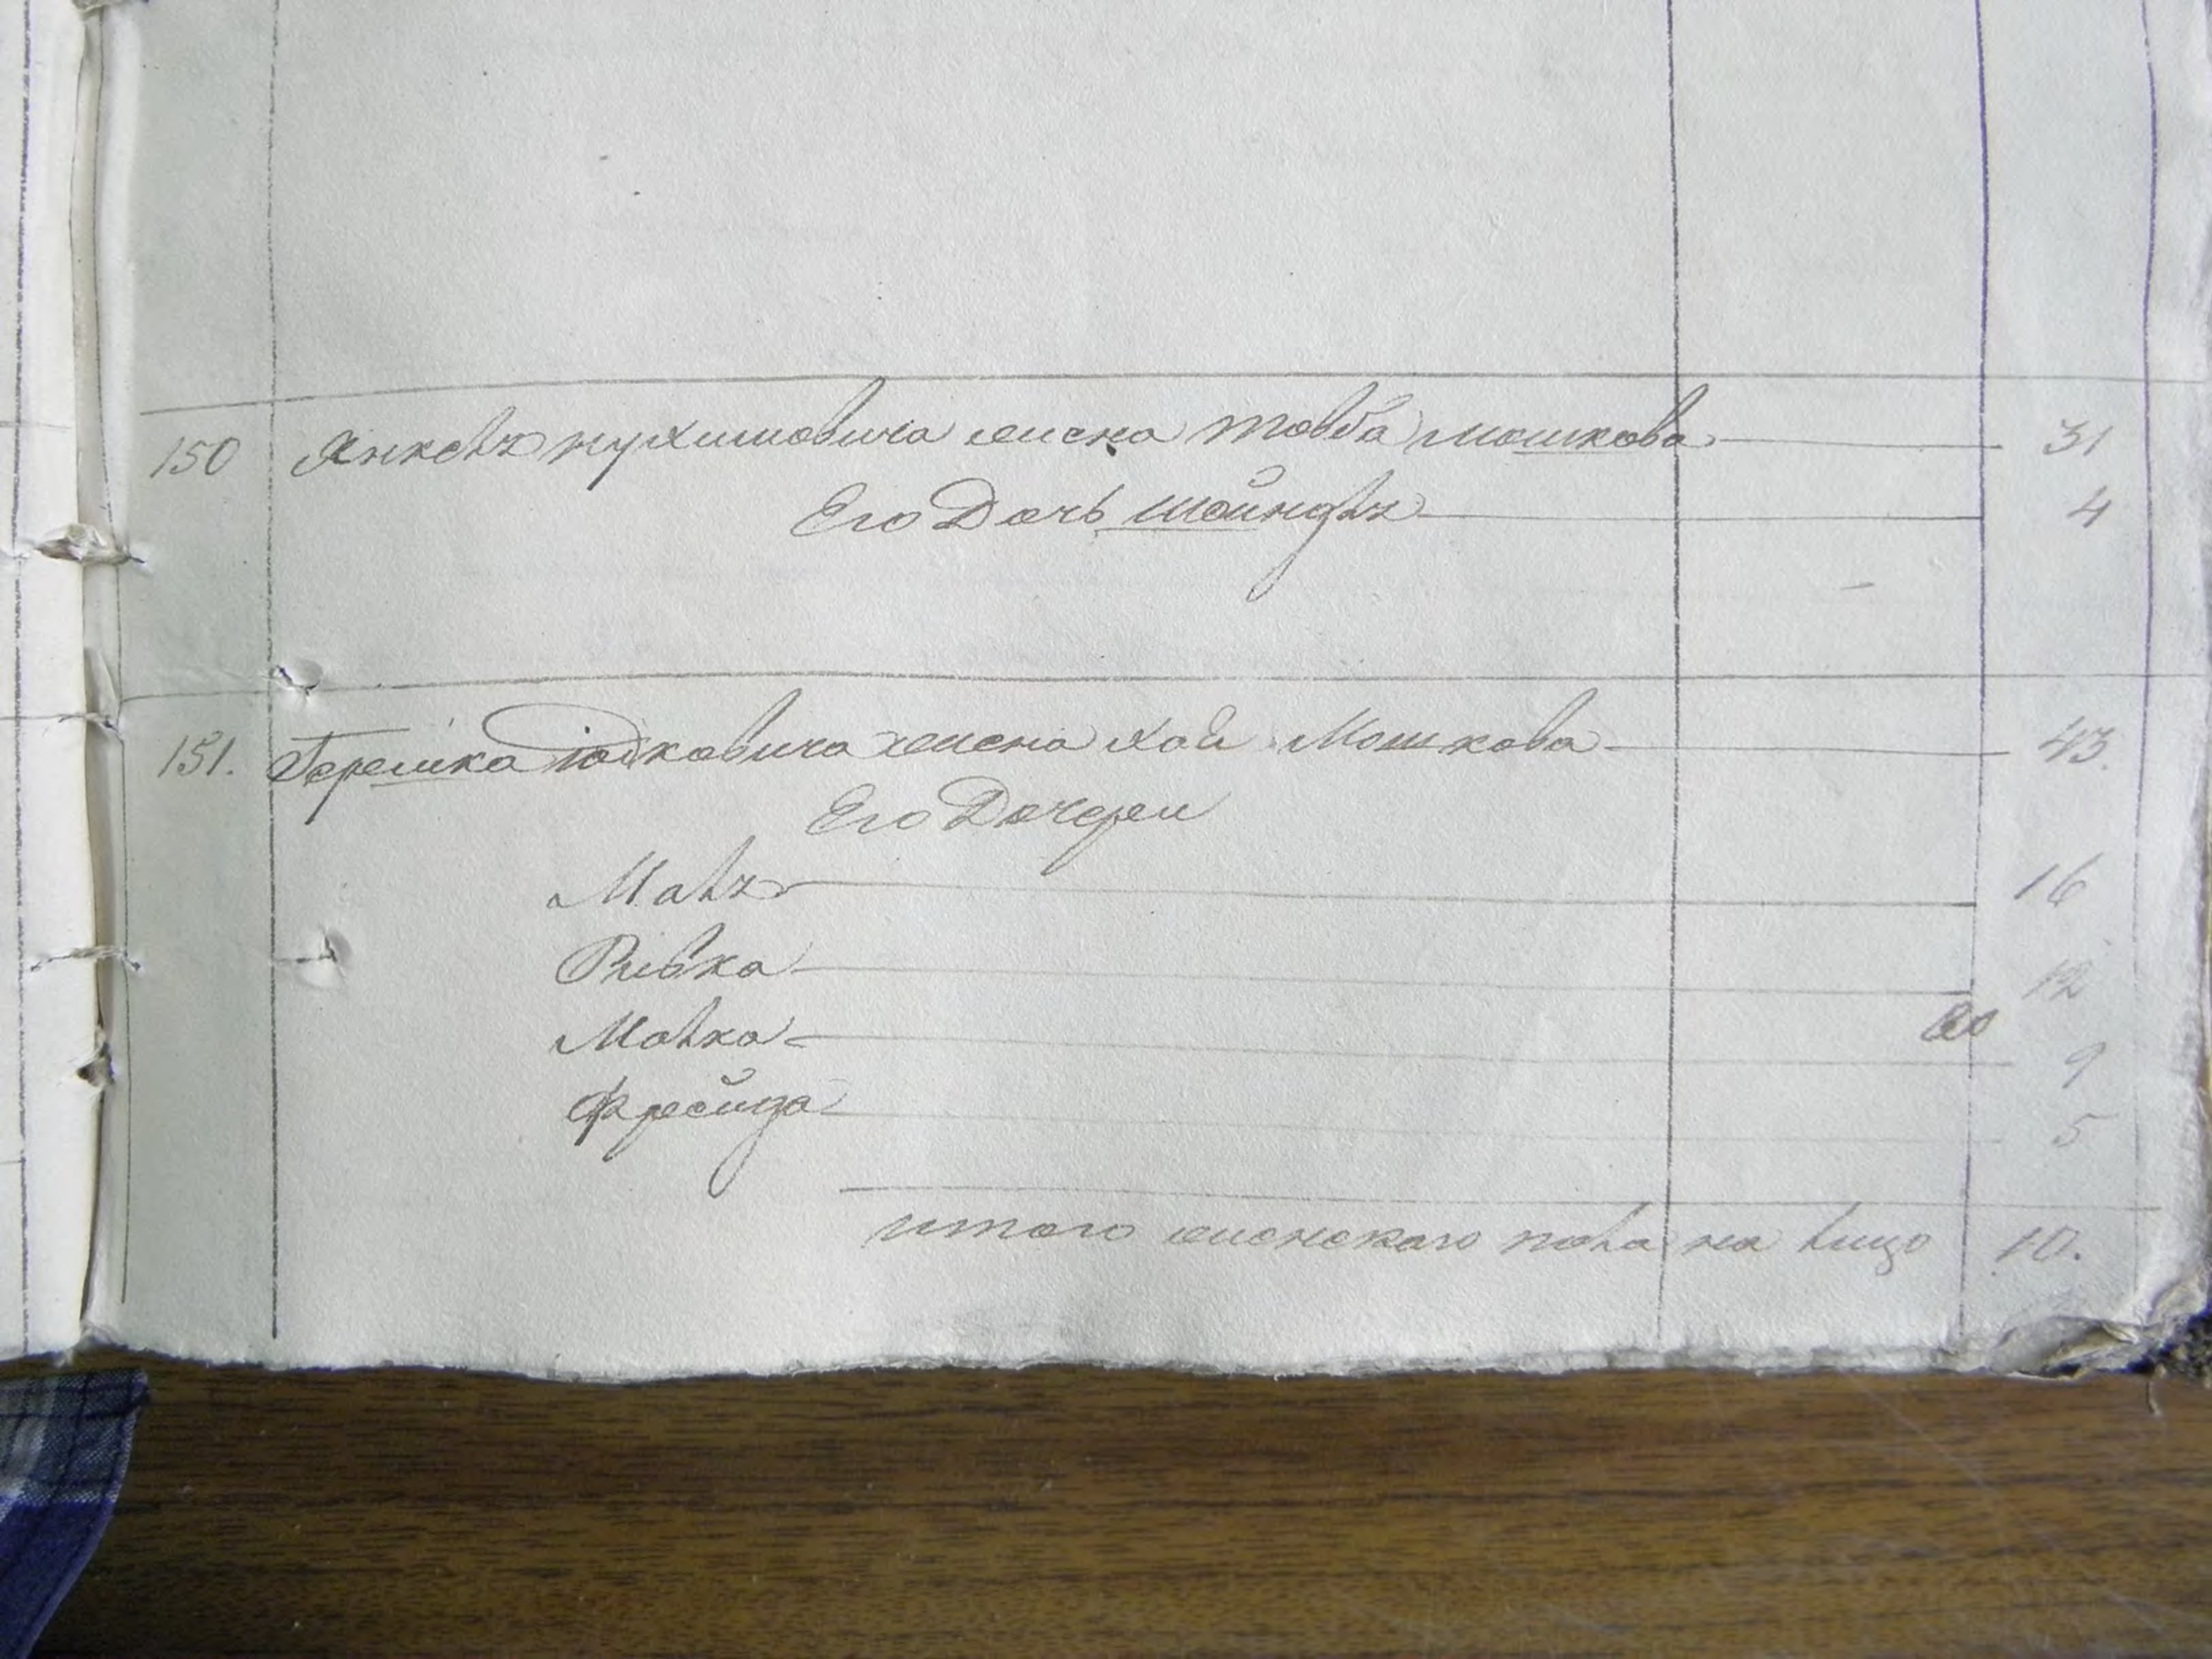 150 Янкель нухимовича жена товба мошкова 31
Его Дочь шейндль 4
151. Гершка іодковича жена хая Мошкова 43.
Его Дочери
Маль 16
Ривка 12
Малка 9
Фрейда 5
итого женскаго пола на лицо 10.